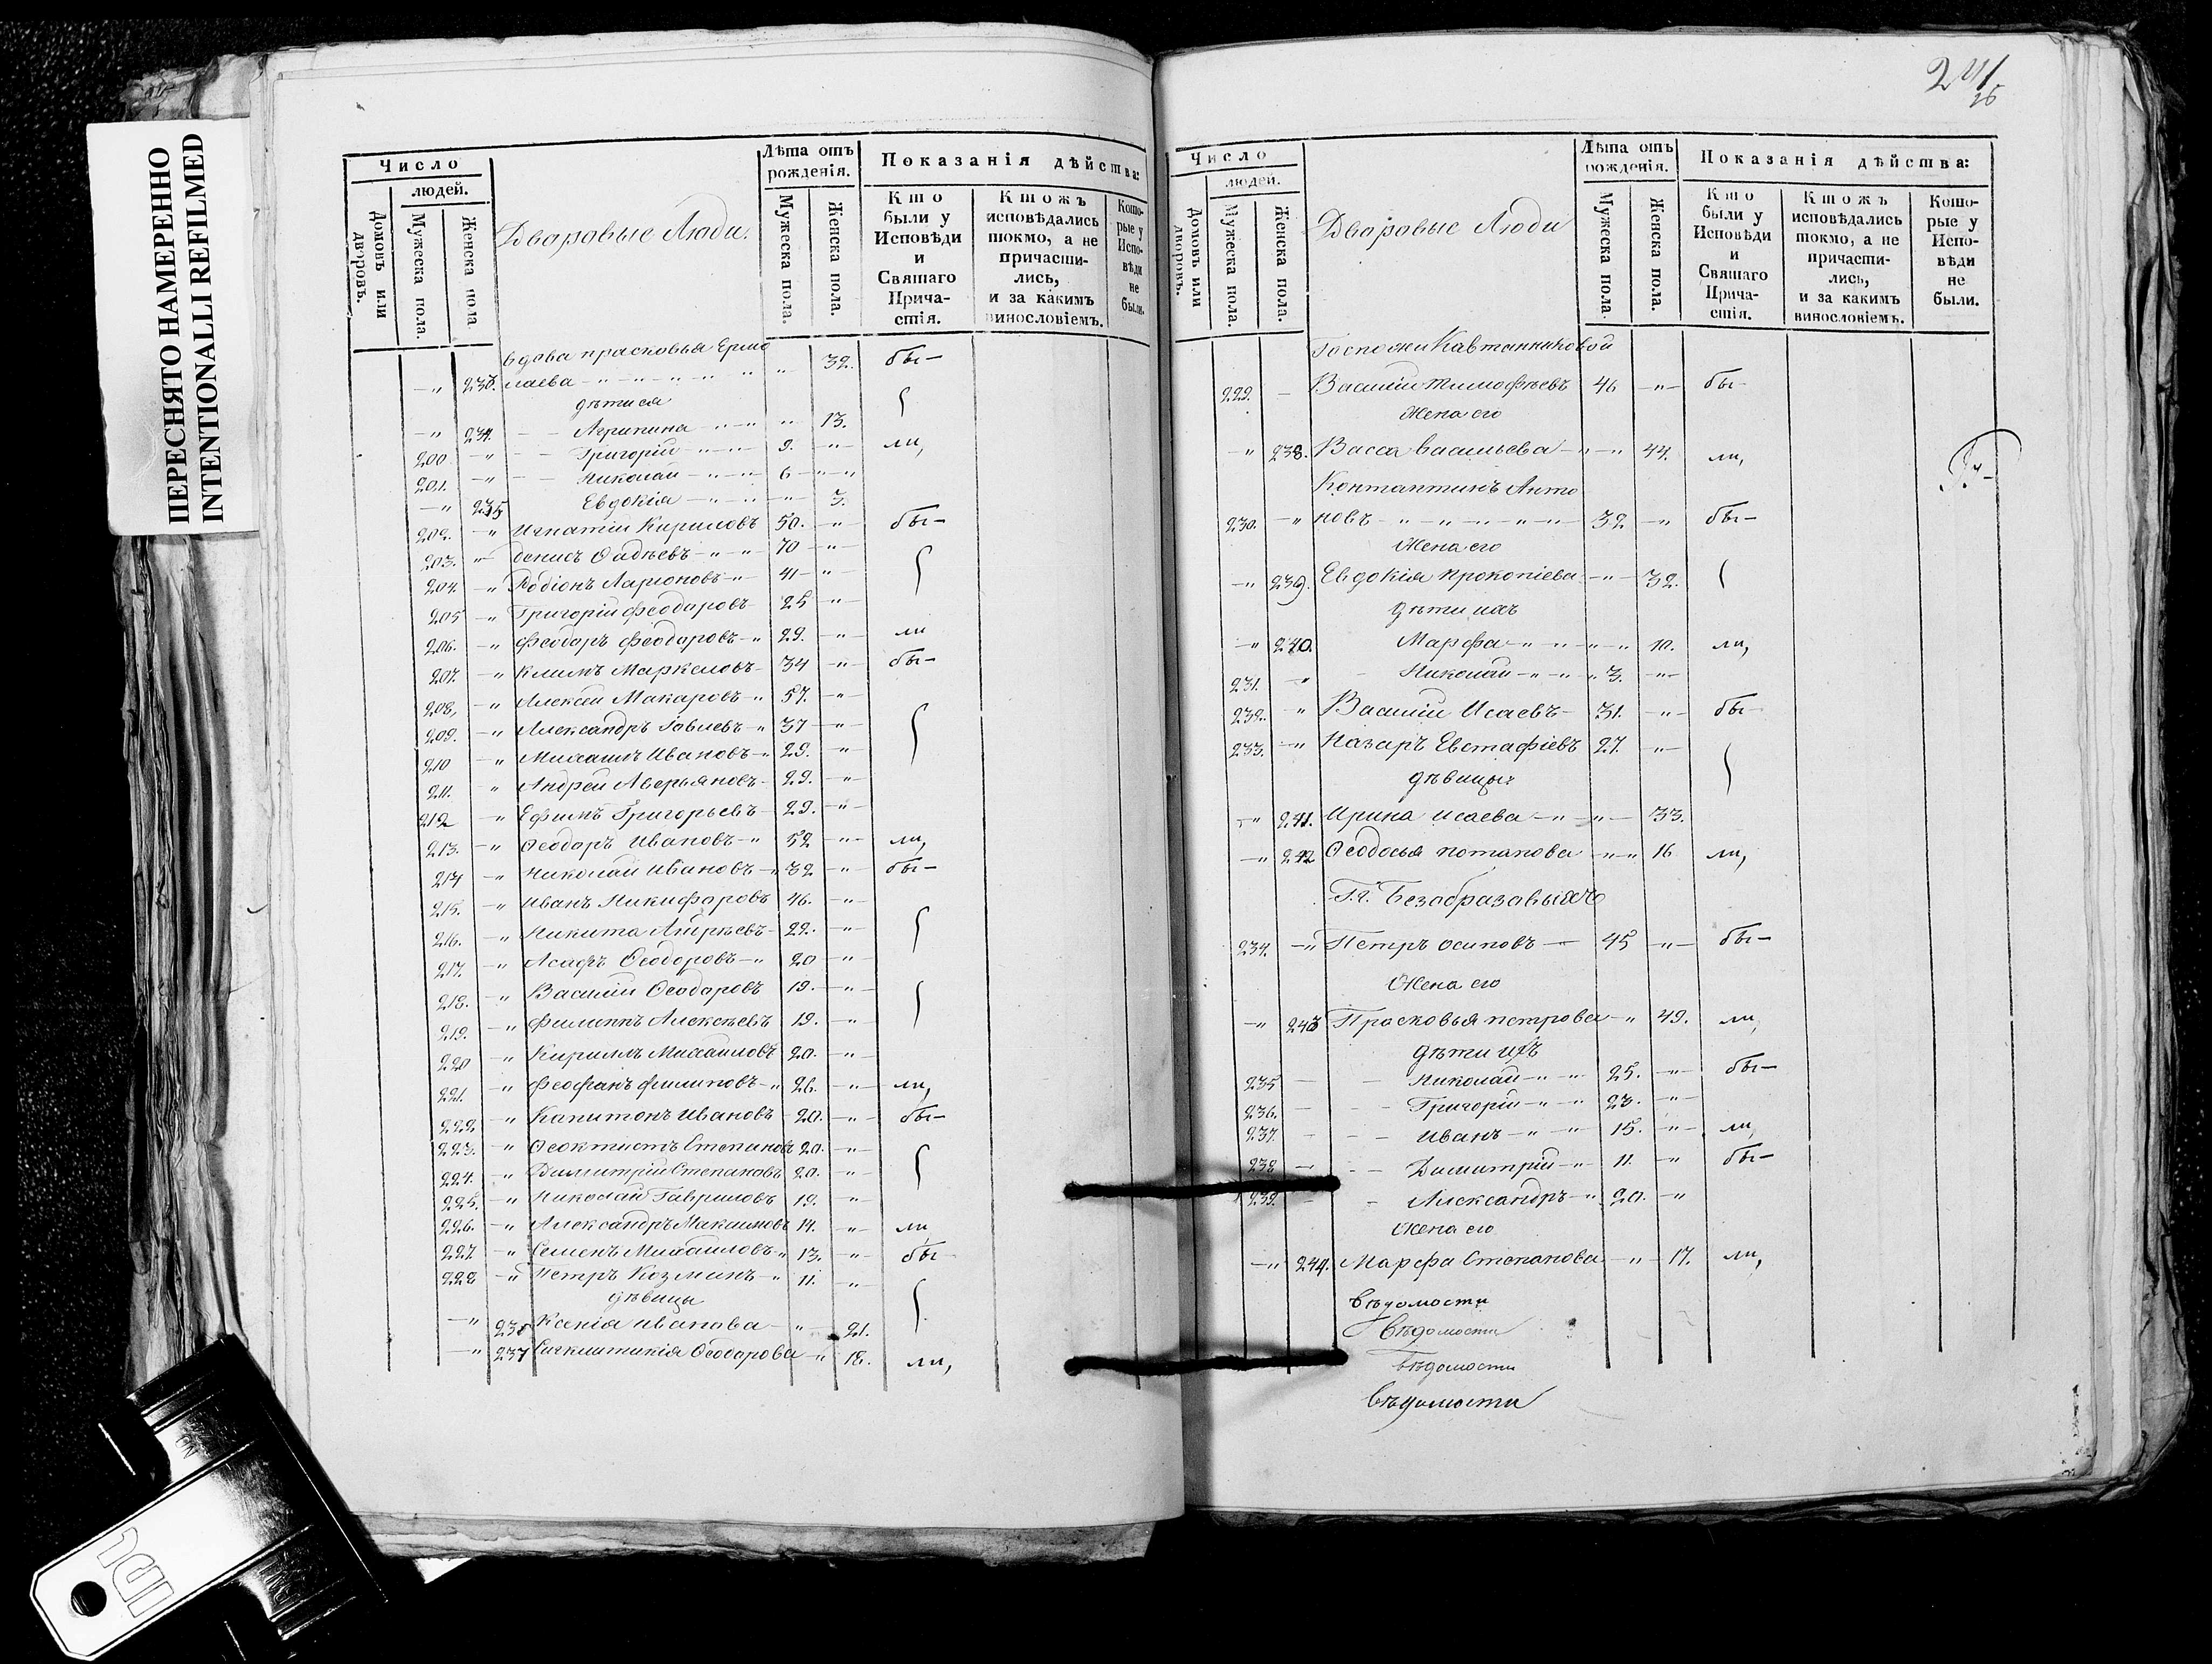 ПЕРЕСНЯТО НАМЕРЕННО
INTENTIONALLI REFILMED
Число
людей.
Домовъ или дворовъ.
Мужеска пола.
Женска пола.
Дворовые Люди.
Лѣта отъ рожденія.
Мужеска пола.
Женска пола.
Показанія дѣйства:
Кто были у Исповѣди и Святаго Прича- стія.
Ктожъ исповѣдались токмо, а не причасти- лись, и за какимъ винословіемъ.
Кото- рые у Испо- вѣди не были.
вдова прасковья Ермо 32. бы-
-" 233. лаева - " - " - " "
дѣти ея
-" 234. - - Агрипина - " - " 13.
200 -" - - Григорій - " - " 9. -" ли,
201. -" - - Николай - " - " 6 - " - "
-" 235 Евдокія - " - " 3.
202. -" Игнатій Кириловъ 50. -" бы-
203. -" денисъ Ѳадѣевъ - " - " 70 -"
204. -" Родіонъ Ларіоновъ -" 41 -"
205 -" Григорій феодоровъ 25 -"
206. -" феодоръ феодоровъ -" 29. -" ли
207. -" Климъ Маркеловъ - 34 -" бы-
208, -" Алексей Макаровъ -" 57. -"
209. -" Александръ Іовлевъ -" 37 -"
210 -" Михаилъ Ивановъ -" 29. -"
211. " Андрей Аверьяновъ - 29. -"
212 -" Ефимъ Григорьевъ - 29. -"
213. -" Ѳеодоръ Ивановъ -" 52 -" ли,
214 -" Николай Ивановъ -" 32 -" бы-
215. -" иванъ Никифоровъ 46. -"
216. -" Никита Андрѣевъ - 22. -"
217. -" Асафъ Ѳеодоровъ -" 20 -"
218. -" Василій Ѳеодоровъ 19. -"
219. -" филиппъ Алексѣевъ 19. -"
220 -" Кириллъ Михаиловъ 20. -"
221. " феофанъ филиповъ -" 26. -" ли,
222 -" Капитонъ Ивановъ - 20. -" бы-
223. " Ѳеоктистъ Степановъ 20. -"
224. -" Димитрій Степановъ 20. -"
225. -" Николай Гавриловъ 19. -"
226. -" Александръ Максимовъ 14. -" ли
227. -" Семенъ Михаиловъ -" 13. -" бы
228 -" Петръ Козминъ -" 11. -"
дѣвицы
-" Ксенія иванова - " - 21.
-" 237 Сигклитикія Ѳеодорова -" 18. ли,
241
Число
людей.
Домовъ или дворовъ.
Мужеска пола.
Женска пола.
Дворовые Люди
Лѣта отъ рожденія.
Мужеска пола.
Женска пола.
Показанія дѣйства:
Кто были у Исповѣди и Святаго Прича- стія.
Ктожъ исповѣдались токмо, а не причасти- лись, и за какимъ винословіемъ.
Кото- рые у Испо- вѣди не были.
Госпожи Кавтанниковой
229. - Василій Тимофѣевъ 46 -" - бы-
Жена его
-" 238. Васса васильева - " - " 44. ли,
Контантинъ Анто
230. -" новъ - " - " - " - " - " 32 -" бы-
Жена его
-" 239. Евдокія прокопіева - " - 32.
дѣти ихъ
-" 240. Марфа - " - " - " 10. ли,
231. -" - Николай - " - " 3. -"
232. " Василій Исаевъ - 31. -" - бы-
233. -" Назаръ Евстафіевъ 27. -"
дѣвицы:
-" 241. Ирина исаева - " - " - 33.
-" 242 Ѳеодосья потапова - " - " 16 ли,
Г.г. Безобразовыхъ
234. -" Петръ осиповъ - 45 -" - бы-
Жена его
-" 243 Прасковья петрова -" 49. ли,
дѣти ихъ
235 - - Николай - " - " 25. -" бы-
236. - - Григорій - " - " 23. -"
237. - - иванъ - " - " 15. -" ли,
238 - - Димитрій - " 11. -" бы-
239. - - Александръ - " 20. -"
Жена его
-" 244. Марфа Степанова - " - 17. ли,
вѣдомости
Вѣдомости
вѣдомости
Вѣдомости